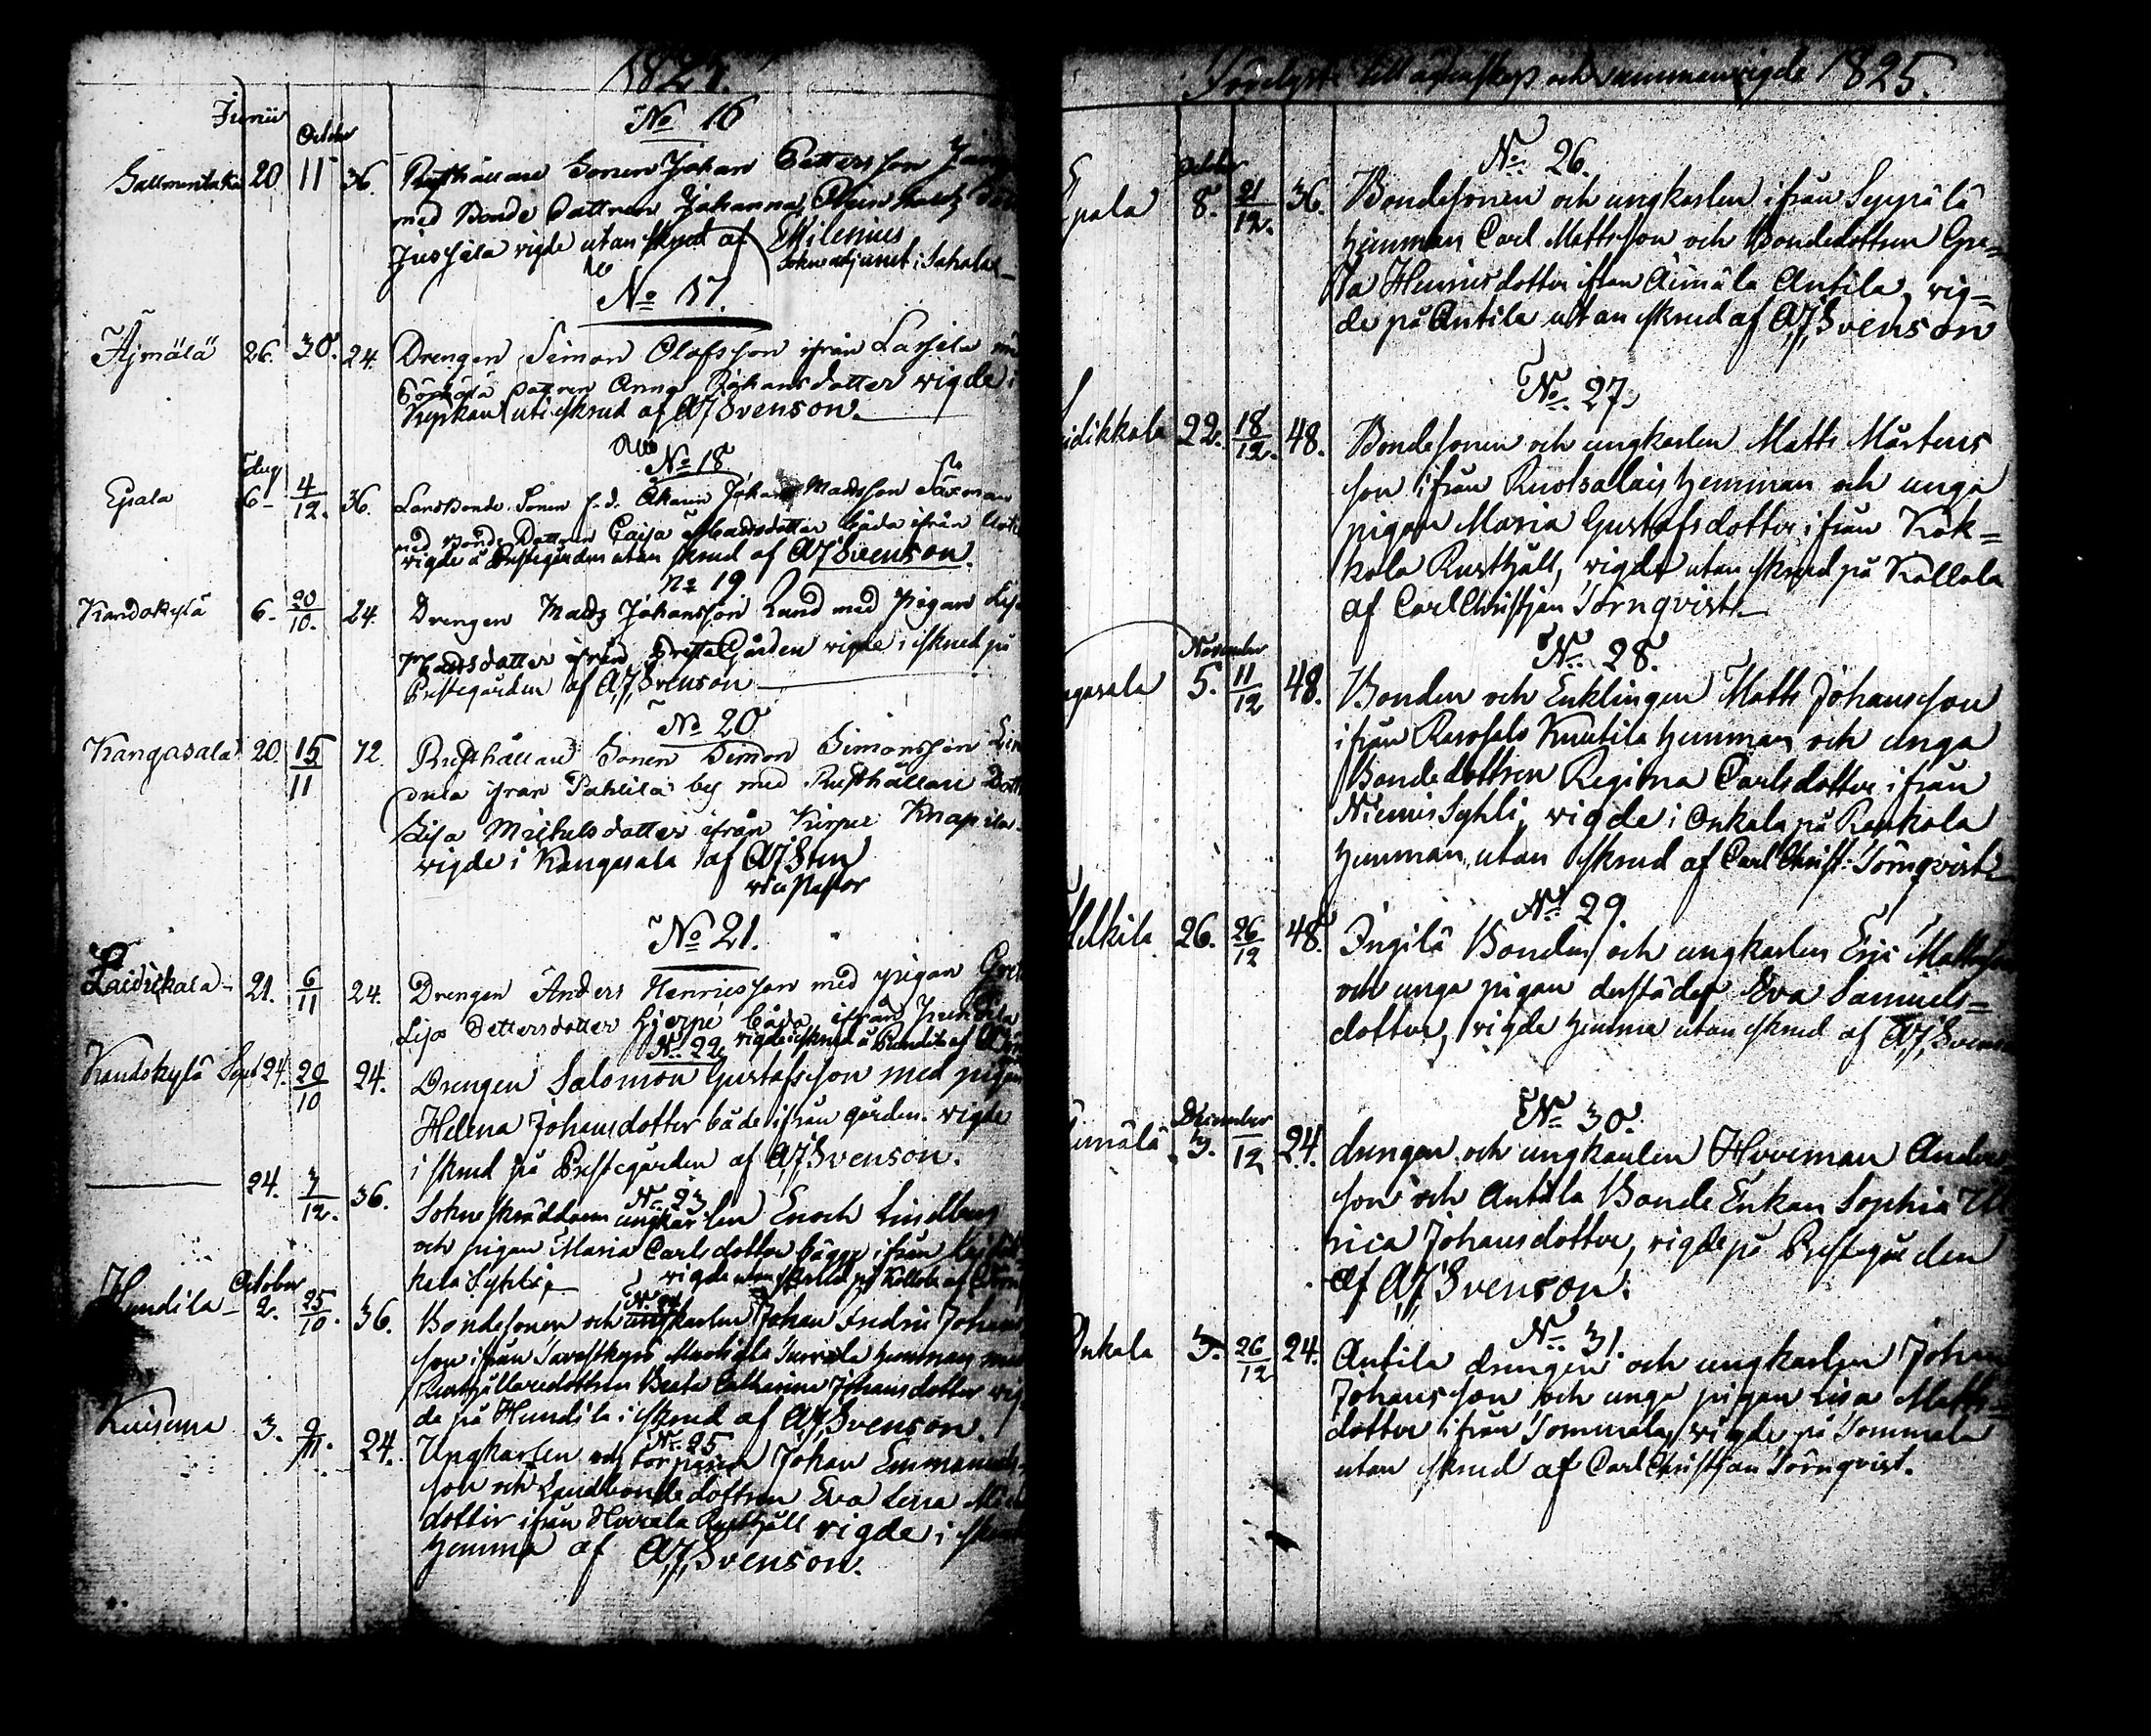 1825.
Junii
October
No 16
Sallmentaka 20 11 36. Rusthållare Sonen Johan Pettersson
med Bonde Dottren Johanna
Jussila vigde utan skrud af Milenius
Sokne adjunct i Sahala
No 17.
Äjmälä 26. 30. 24. Drengen Simon Olofsson ifrån Lassila
Dottren Anna Johansdotter vigde i
Kyrkan uti skrud af AJSvenson.
Aug
No 18
Epala 6- 4/12. 36. Landbonde Sonen f.d. Johan Mattsson Saxman
med Bonde Dottren Caisa Mattsdotter båda ifrån
vigde å Prestegården utan skrud af AJSvenson.
No 19
Kandokylä 6- 20/10. 24. Drengen Matts Johansson Lund med Pigan
Mattsdotter ifrån Prestegården vigde i skrud på
Prestegården af AJSvenson
No 20
Kangasala 20. 15/11 72. Rusthållare Sonen Simon Simonsson
ifrån Pahlila by med Rusthållare
Lisa Michelsdotter ifrån Knapila
vigde i Kangasala af AJSten
vice Pastor
No 21.
Laidickala - 21. 6/11 24. Drengen Anders Henricsson med pigan
Lisa Pettersdotter Hjerpe båda ifrån
vigde i skrud å Pundila af
No 22
Kandokylä Sept 24. 20/10 24. Drengen Salomon Gustafsson med pigan
Helena Johansdotter både ifrån gården. vigde
i skrud på Prestegården af AJSvenson.
No 23
24. 3/12. 36. Sokneskräddaren ungkarlen Enoch Lindberg
och pigan Maria Carlsdotter bägge ifrån
kala Syhli, vigde utan skrud på Kollola af
October
Hundila - 2. 25/10. 36. Bondesonen och ungkarlen Johan Fredric
son ifrån Tavastkyro hemman med
Rusthållaredottren Beata Catharina Johansdotter vig-
de på Hundila i skrud af AJSvenson.
No 25
Kuisema 3. 9/11. 24. Ungkarlen och torparen Johan Emmanuels-
son och Landbondedottren Eva Lena
dotter ifrån Rusthåll vigde i skrud
hemma af AJSvenson.
Förelyste till ägtenskap och sammanvigde 1825.
October
No 26.
Epala 8. 21/12. 36. Bondesonen och ungkarlen ifrån Seppälä
hemman Carl Mattsson och Bondedottren Gre-
ta Henricsdotter ifrån Äimälä Antila, vig-
de på Antila utan skrud af AJSvenson
No 27.
idikkala 22. 18/12. 48. Bondesonen och ungkarlen Matts Mårtens
son ifrån Ruotsalais hemman och unga
pigan Maria Gustafsdotter ifrån Kok-
kola Rusthåll, vigde utan skrud på Kollola
af Carl Christjan Törnqvist.
November
No 28.
ngasala 5. 11/12 48. Bonden och Enklingen Matts Johansson
ifrån Knutila hemman och unga
Bondedottren Regina Carlsdotter ifrån
Niemis Syhli, vigde i Onkala på
hemman, utan skrud af Carl Christ: Törnqvist
No 29.
26. 26/12 48. Ingilä Bonden och ungkarlen Eric Mattsson
och unga pigan derstädes Eva Samuels-
dotter, vigde hemma utan skrud af AJSvenson
December
No 30.
3. /12 24. drengen och ungkarlen Herman Anders
son och Antila Bonde Enkan Sophia Ul-
rica Johansdotter, vigde på Prestegården
af AJSvenson.
No 31.
Onkala 3. 26/12 24. Antila drengen och ungkarlen Johan
Johansson och unga pigan Lisa Matts-
dotter ifrån Tommola, vigde på Tommola
utan skrud af Carl Christjan Törnqvist.